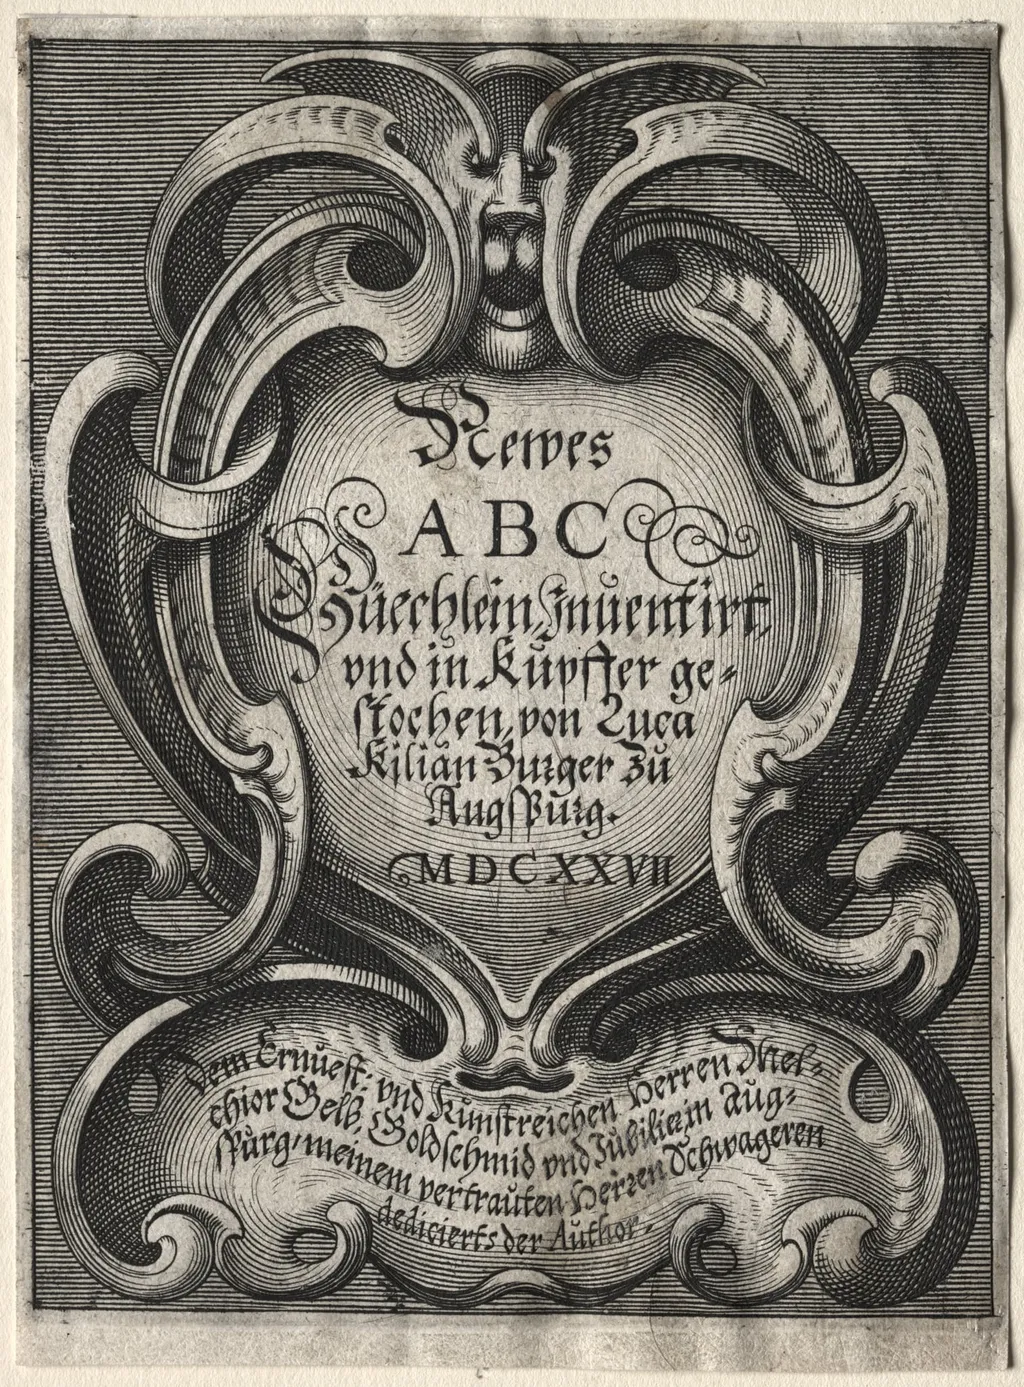 Newes
ABC
Büechlein, Inventirt,
vnd in Kupffer ge-
stochen, von Luca
Kilian Burger zu
Augspurg.
MDCXXVII
Dem Ernvest: vnd Kunstreichen Herren Mel-
chior Gelb, Goldschmid vnd Jubilier in Aug-
spurg, meinem vertrauten Herren Schwageren
dedicierts der Author.